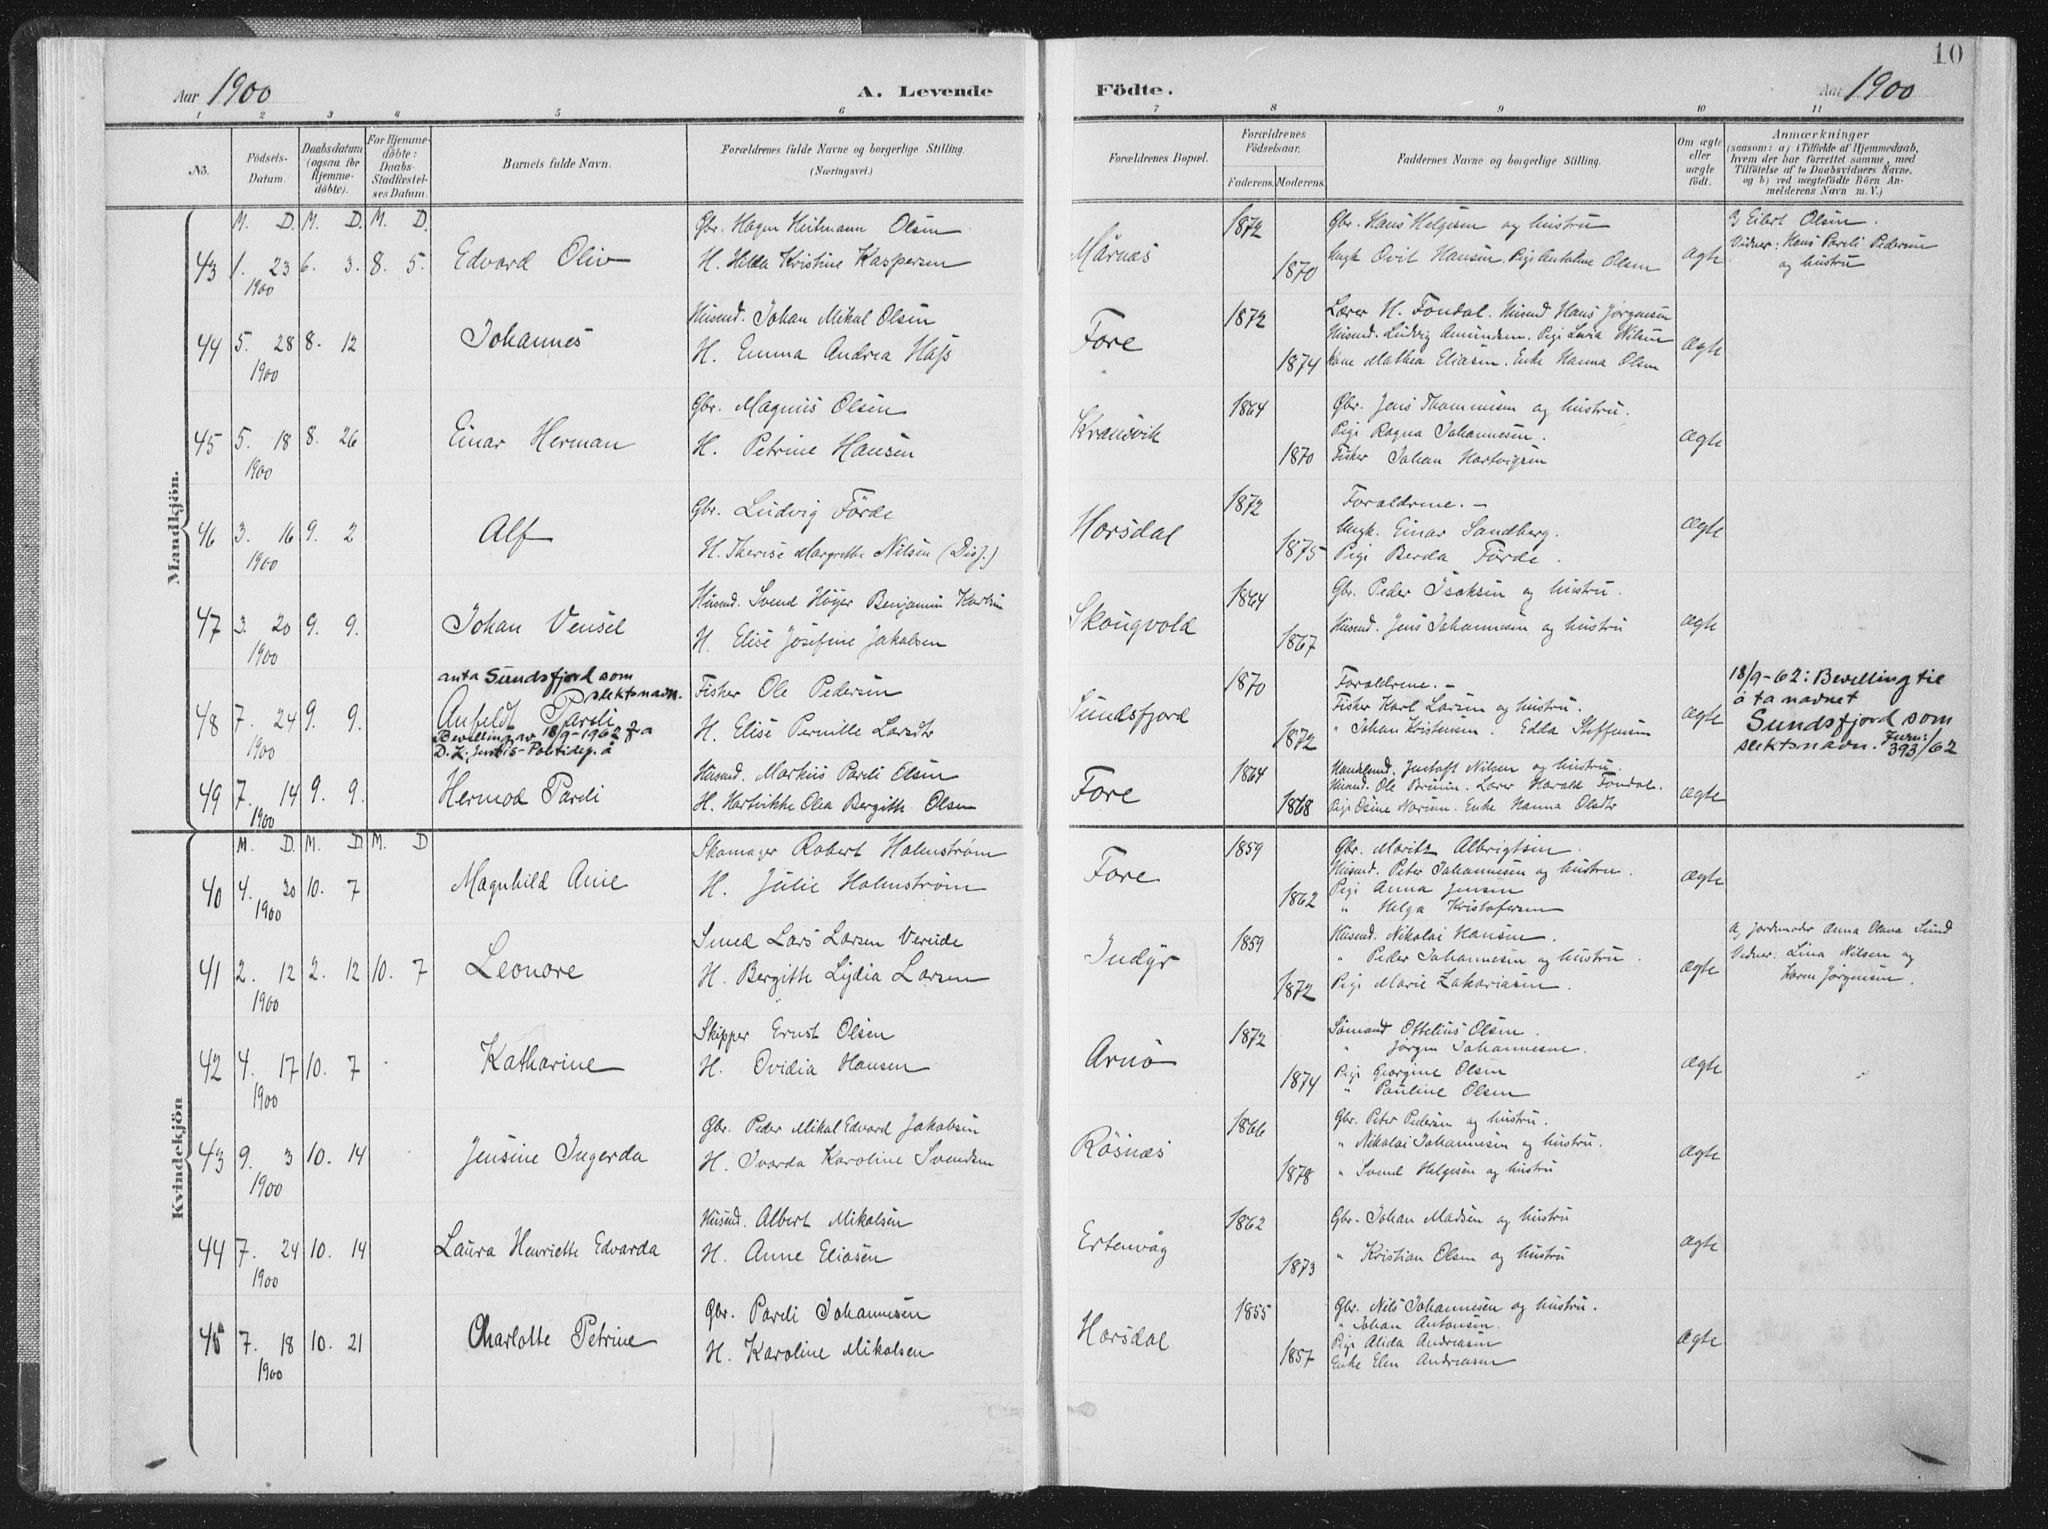 10
Aar 1900 A. Levende Födte. Aar 1900
1 2 3 4 5 6 7 8 9 10 11
No.
Födsels-Datum.
Daabsdatum (ogsaa for Hjemme-döbte).
For Hjemme-döbte: Daabs-Stadfæstel-ses Datum.
Barnets fulde Navn.
Forældrenes fulde Navne og borgerlige Stilling.
(Næringsvei.)
Forældrenes Bopæl.
Forældrenes Födselsaar.
Faderens. Moderens.
Faddernes Navne og borgerlige Stilling.
Om ægte eller uægte født.
Anmærkninger
(saasom: a) i Tilfælde af Hjemmedaab,
hvem der har forrettet samme, med
Tilföielse af to Daabsvidners Navne.
og b) ved uægtefödte Börn An-
melderens Navn m. V.)
Mandkjön.
M. D. M. D. M. D.
43 1. 23 6. 3. 8. 5. Edvard Oliv
1900
Gbr. Hagen Heitmann Olsen
H. Hilda Kristine Kaspersen
Mårnæs 1872 1870
Gbr. Hans Helgesen og hustru
Ungk Ovit Hansen. Pige Antoline Olsen
ægte
a) Eilert Olsen.
Vidner: Hans Pareli Pedersen
og hustru
44 5. 28 8. 12 Johannes
1900
Husmd. Johan Mikal Olsen
H. Emma Andrea Hass
Fore 1872 1874
Lærer H. Fondal. Husmd Hans Jørgensen
Husmd. Ludvig Amundsen. Pige Lovia Nilsen
Kone Mathea Eliasen. Enke Hanna Olsen
ægte
45 5. 18 8. 26 Einar Herman
1900
Gbr. Magnus Olsen
H. Petrine Hansen
Kransvik 1864 1870
Gbr. Jens Thommesen og hustru.
Pige Ragna Johannesen.
Fisker Johan Hartvigsen
ægte
46 3. 16 9. 2 Alf
1900
Gbr. Ludvig Förde
H. Therese Margrethe Nilsen (Diss.)
Horsdal 1872 1875
Forældrene. –
Ungk. Einar Sandberg.
Pige Berda Förde.
ægte
47 3. 20 9. 9. Johan Vensel
1900
Husmd. Svend Höyer Benjamin Karlsen
H. Elise Josefine Jakobsen
Skougvold 1864 1867
Gbr. Peder Isaksen og hustru.
Husmd. Jens Johannesen og hustru
ægte
anta Sundsfjord som
slektsnavn.
48 7. 24 9. 9. Anfeldt Pareli
1900
Bevilling av 18/9-1962 fra
D.K. Justis-Politidep. å
Fisker Ole Pedersen
H. Elise Pernille Larsdtr
Sundsfjord 1870 1872
Forældrene. –
Fisker Karl Larsen og hustru.
" Johan Kristensen. Edda Steffensen
ægte
18/9-62: Bevilling til
å ta navnet
Sundsfjord som
slektsnavn. Jurn: 393/62
49 7. 14 9. 9. Hermod Pareli
1900
Husmd. Markus Pareli Olsen
H. Hartvikke Olea Bergitte Olsen
Fore 1864 1868
Handelsmd. Gustaft Nilsen og hustru.
Husmd. Ole Bruun. Lærer Harald Fondal.
Pige Osine Norum. Enke Hanna Olsdtr
ægte
Kvindekjön
M. D. M. D M. D
40 4. 30 10. 7 Magnhild Anie
1900
Skomager Robert Holmstrøm
H. Julie Holmstrøm
Fore 1859 1862
Gbr. Moritz Albrigtsen.
Husmd. Peter Johannesen og hustru.
Pige Anna Jensen
" Helga Kristofersen
ægte
41 2. 12 2. 12 10. 7 Leonore
1900
Smed Lars Larsen Verude
H. Bergitte Lydia Larsen
Indyr 1859 1872
Husmd. Nikolai Hansen.
" Peder Johannesen og hustru.
Pige Marie Zakariasen.
ægte
a) jordmoder Anna Olava Sund
Vidner: Lina Nilsen og
Karen Jørgensen.
42 4. 17 10. 7 Katharine
1900
Skipper Ernst Olsen
H. Ovidia Hansen
Arnö 1872 1874
Sømand Ottelius Olsen.
" Jørgen Johannesen.
Pige Georgine Olsen
" Pauline Olsen
ægte
43 9. 3 10. 14 Jensine Ingerda
1900
Gbr. Peder Mikal Edvard Jakobsen
H. Ivarda Karoline Svendsen
Rösnæs 1866 1878
Gbr. Peter Pedersen og hustru.
" Nikolai Johannesen og hustru.
" Svend Helgesen og hustru
ægte
44 7. 24 10. 14 Laura Henriette Edvarda
1900
Husmd. Albert Mikalsen
H. Anne Eliasen
Ertenvåg 1862 1873
Gbr. Johan Madsen og hustru
" Kristian Olsen og hustru
ægte
45 7. 18 10. 21 Charlotte Petrine
1900
Gbr. Pareli Johannesen
H. Karoline Mikalsen
Horsdal 1855 1857
Gbr. Nils Johannesen og hustru.
" Johan Antonsen.
Pige Alida Andreasen
Enke Elen Andreasen
ægte